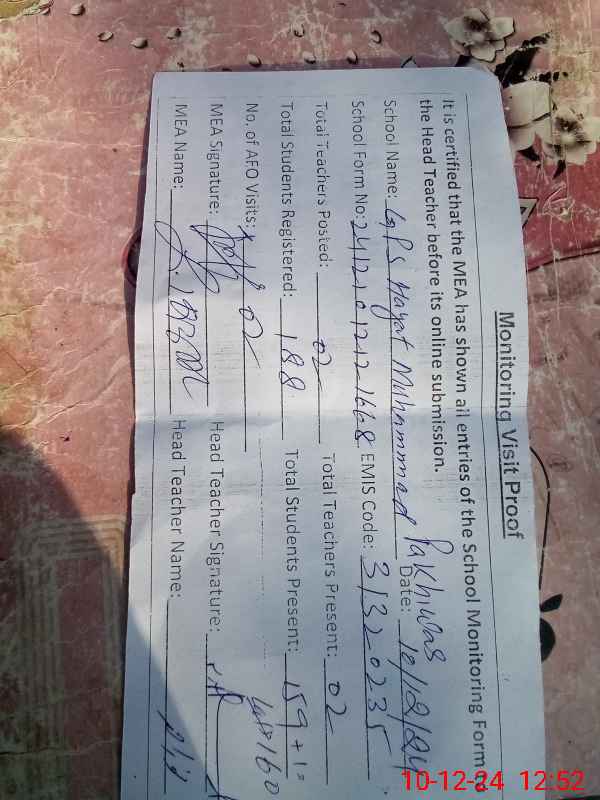 Monitoring Visit Proof
It is certified that the MEA has shown all entries of the School Monitoring Form
the Head Teacher before its online submission.
School Name: GPS Hayat Muhammad Pakhiwas Date: 10/12/24
School Form No: 241210121221668 EMIS Code: 31320235
Total Teachers Posted: 02 Total Teachers Present: 02
Total Students Registered: 188 Total Students Present: 159+1=
No. of AEO Visits: 02 160
MEA Signature: Head Teacher Signature:
MEA Name: Head Teacher Name:
10-12-24 12:52